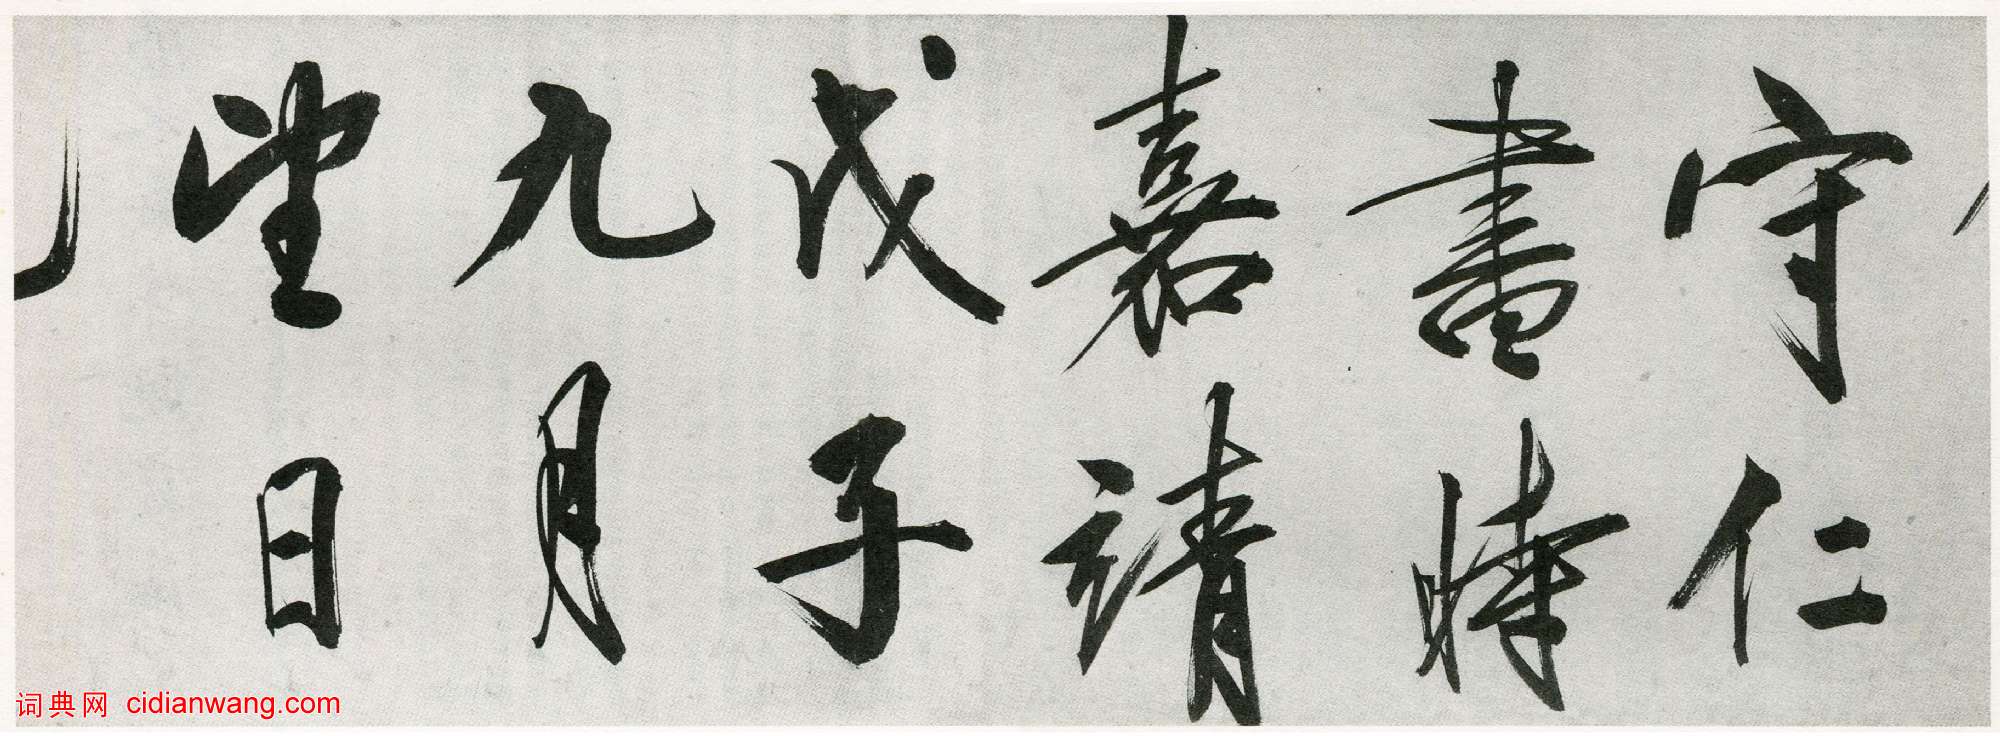 守仁
書時
嘉靖
戊子
九月
望日
词典网 cidianwang.com